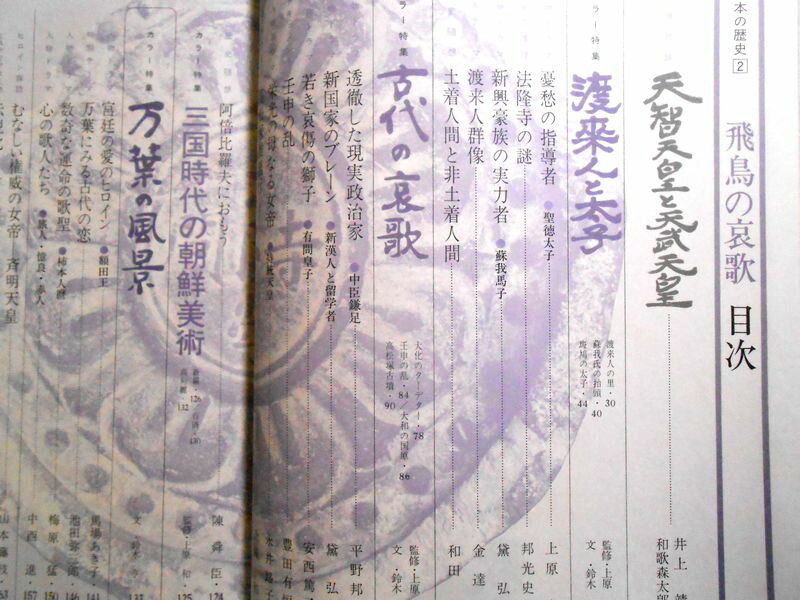 本の歴史2
飛鳥の哀歌 目次
天智天皇と天武天皇
井上 靖
和歌森太郎
ラー特集
渡来人と太子
渡来人の里・30
蘇我氏の抬頭・40
斑鳩の太子・44
監修・上原
文・鈴木
憂愁の指導者●聖徳太子
上原
法隆寺の謎
邦光史
新興豪族の実力者●蘇我馬子
黛 弘
渡来人群像
金 達
土着人間と非土着人間
和田
ラー特集
古代の哀歌
大化のクーデター・78
壬申の乱・84/大和の国原・86
高松塚古墳・90
監修・上原
文・鈴木
透徹した現実政治家●中臣鎌足
平野邦
新国家のブレーン●新漢人と留学者
黛 弘
若き哀傷の獅子●有間皇子
安西篤
壬申の乱
豊田有恒
の母なる女帝●持統天皇
永井路子
阿倍比羅夫におもう
陳 舜臣・124
カラー特集
三国時代の朝鮮美術
監修・上原 和・125
カラー特集
万葉の風景
宮廷の愛のヒロイン●額田王
馬場あき子・141
万葉にみる古代の恋
池田弥三郎・146
数奇な運命の歌聖●柿本人麿
梅原 猛・150
心の歌人たち●旅人・憶良・赤人
中西 進・157
むなしい権威の女帝 斉明天皇
山本藤枝・163